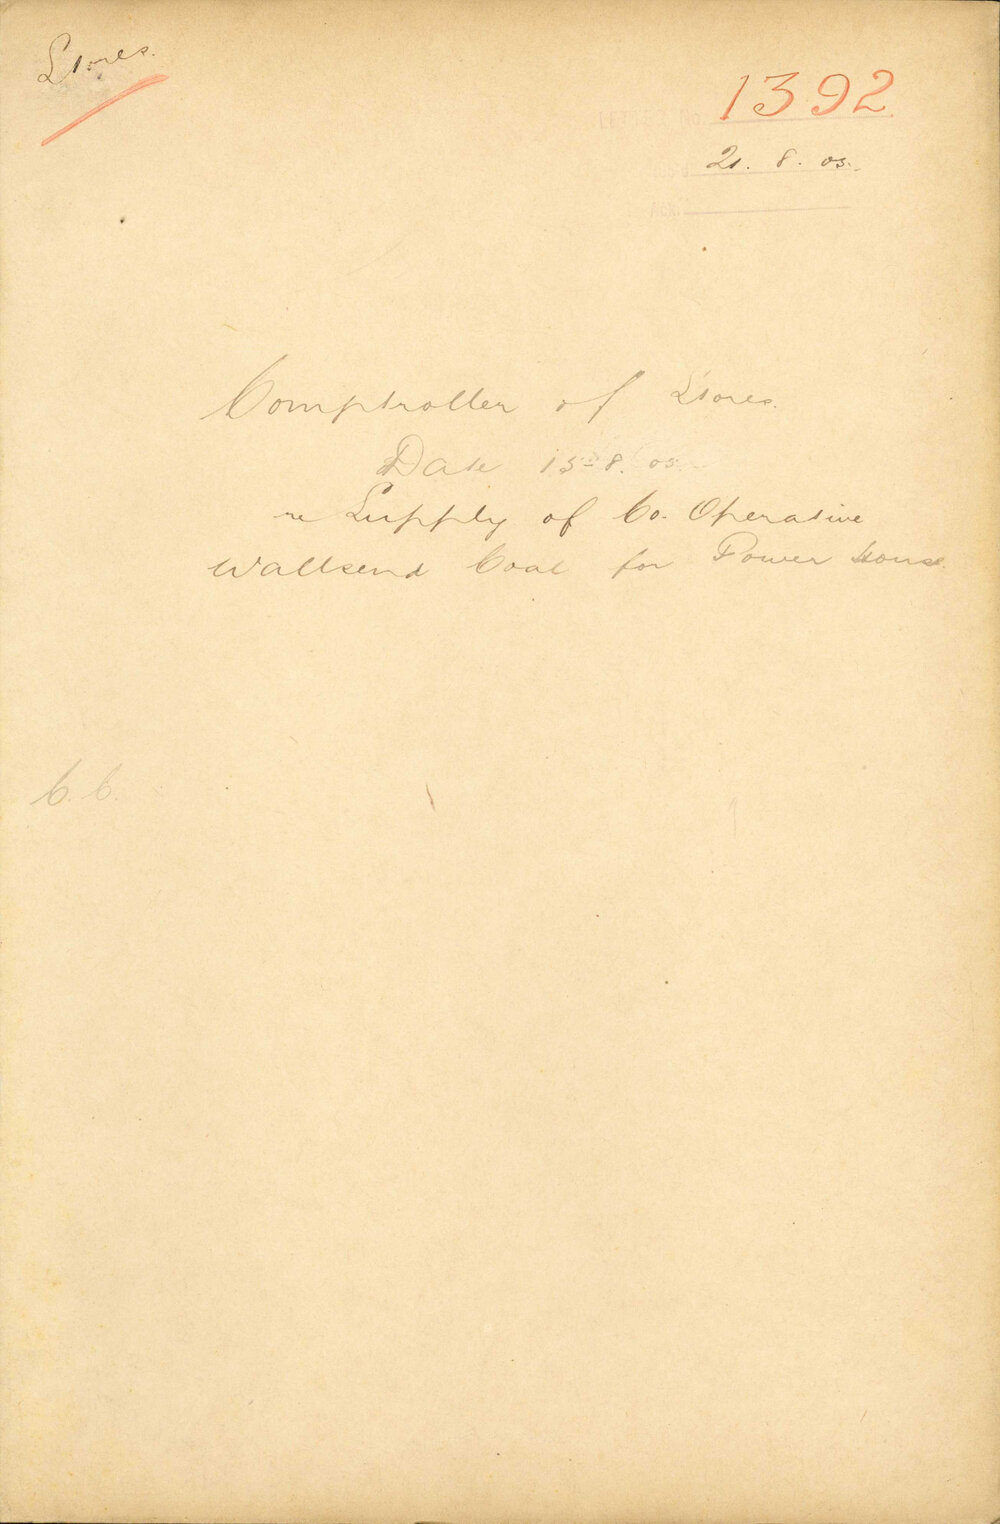 Stores.
1392
21. 8. 05.
Comptroller of Stores.
Date 15-8. 05.
re Supply of Co. Operative
Wallsend Coal for Power House.
C. C.